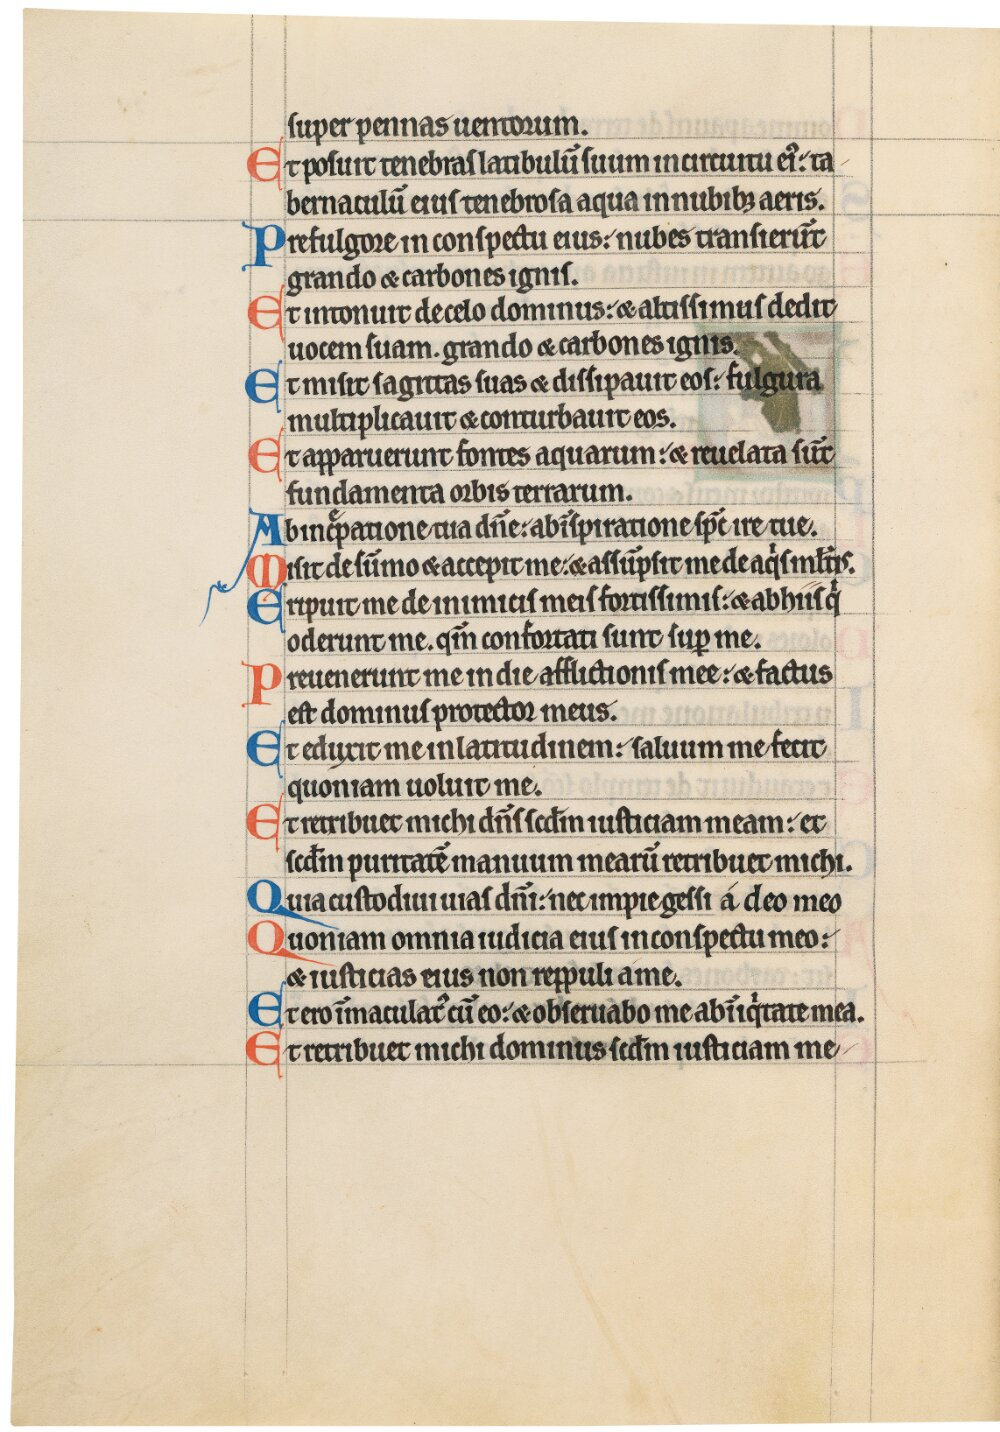 super pennas uentorum.
Et posuit tenebras latibulū suum in circuitu ei᷒: ta
bernaculū eius tenebrosa aqua in nubibꝫ aeris.
Prefulgore in conspectu eius: nubes transierūt
grando & carbones ignis.
Et intonuit de celo dominus: & altissimus dedit
uocem suam. grando & carbones ignis.
Et misit sagittas suas & dissipauit eos: fulgura
multiplicauit & conturbauit eos.
Et apparuerunt fontes aquarum: & reuelata sūt
fundamenta orbis terrarum.
Ab incͤpatione tua dn̄e: ab īspiratione spc̄ ire tue.
Misit de sūmo & accepit me: & assūpsit me de aqͥs ml̄tis.
Eripuit me de inimicis meis fortissimis: & ab hiis qͥ
oderunt me. qm̄ confortati sunt suꝑ me.
Preuenerunt me in die afflictionis mee: & factus
est dominus protector meus.
Et eduxit me in latitudinem: saluum me fecit
quoniam uoluit me.
Et retribuet michi dn̄s scd̄m iusticiam meam: et
scd̄m puritatē manuum mearū retribuet michi.
Quia custodiui uias dn̄i: nec impie gessi á deo meo
Quoniam omnia iudicia eius in conspectu meo:
& iusticias eius non reppuli a me.
Et ero īmaculat᷒ cū eo: & obseruabo me ab īiqͥtate mea.
Et retribuet michi dominus scd̄m iusticiam me